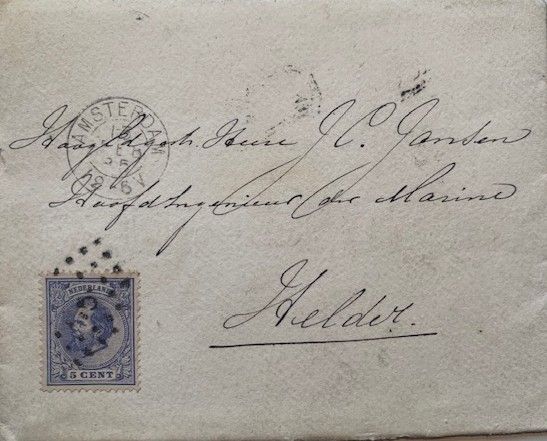 AMSTERDAM
Hoogedgestr. Heere J C. Jansen
Hoofdingenieur der Marine
Helder.
NEDERLAND
5 CENT